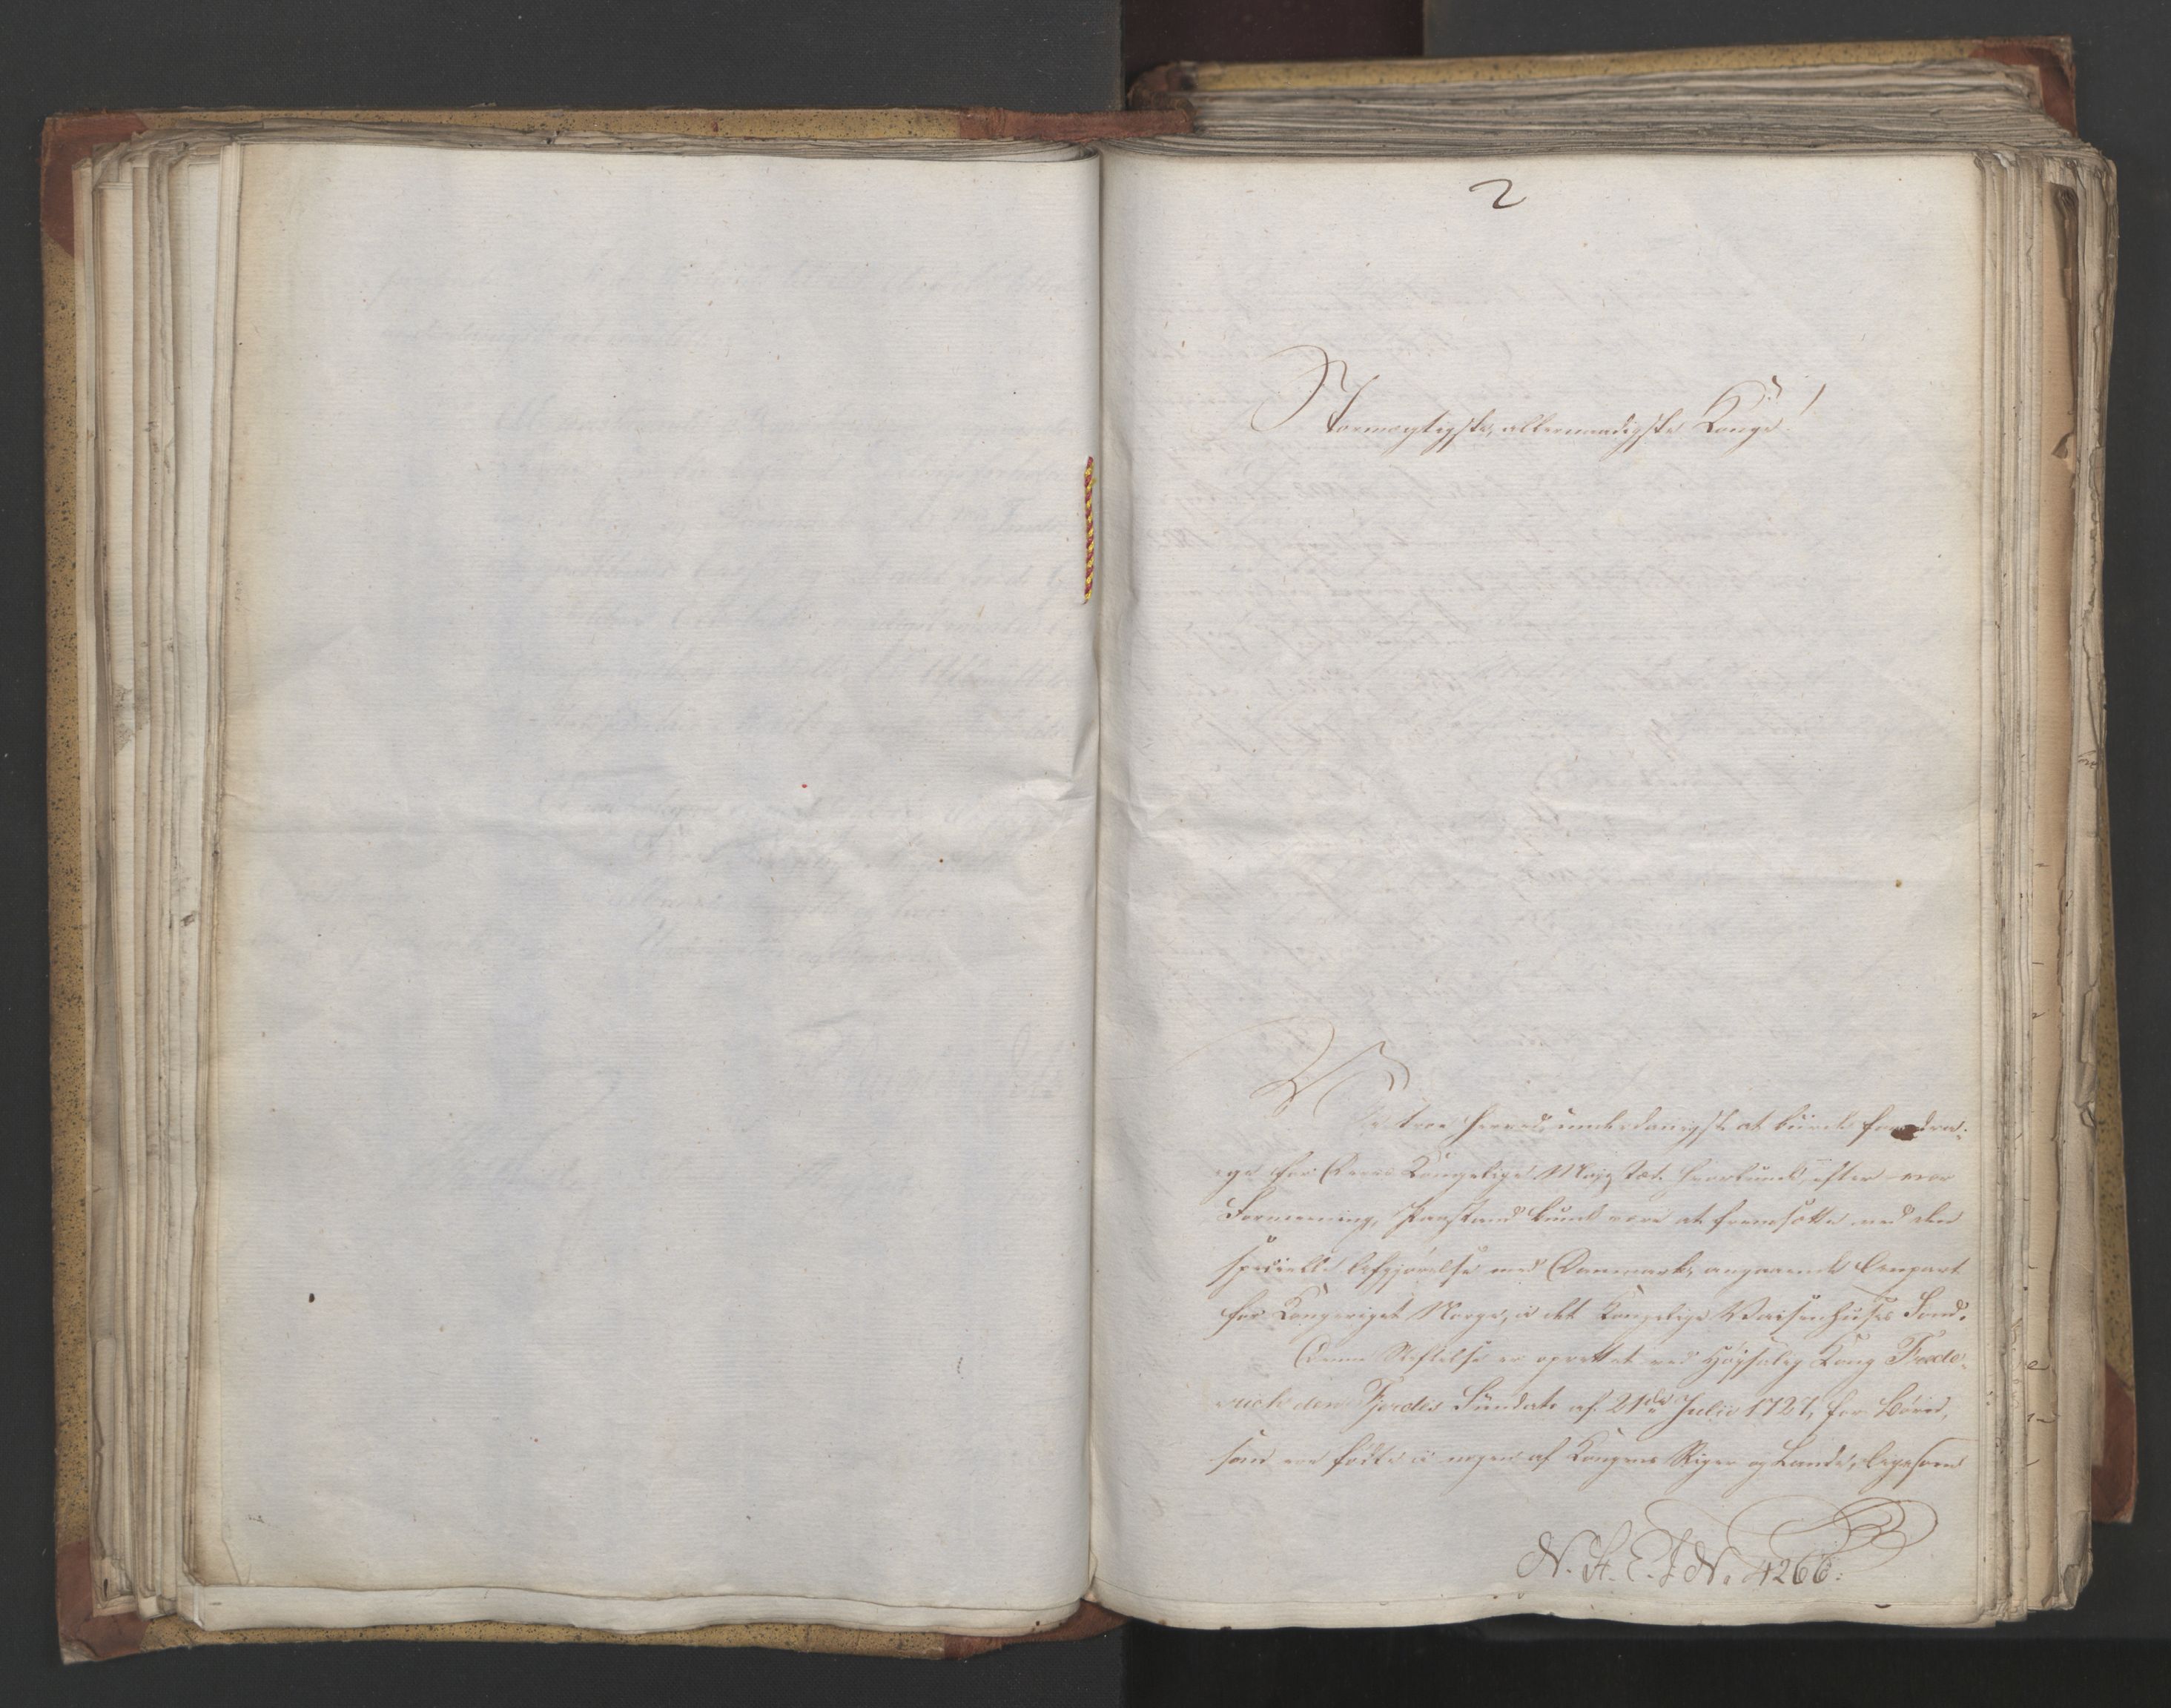 2
Stormægtigste, allernaadigste Konge!
Vi troe herved underdanigst at burde foredra-
ge for Deres Kongelige Majestæt, hvorlunde, efter vor
Formeening, Paastand kunde være at fremsætte ved den
specielle Afgjørelse med Danmark, angaaende Anpart
for Kongeriget Norge, i det Kongelige Vaisenhuses Fond.
Denne Stiftelse er oprettet ved Høysalig Kong Frede-
rich den Fjerdes Fundats af 21de Julii 1727, for Børn,
som ere fødte i nogen af Kongens Riger og Lande, ligesom
N. A. E. J. No 4266: